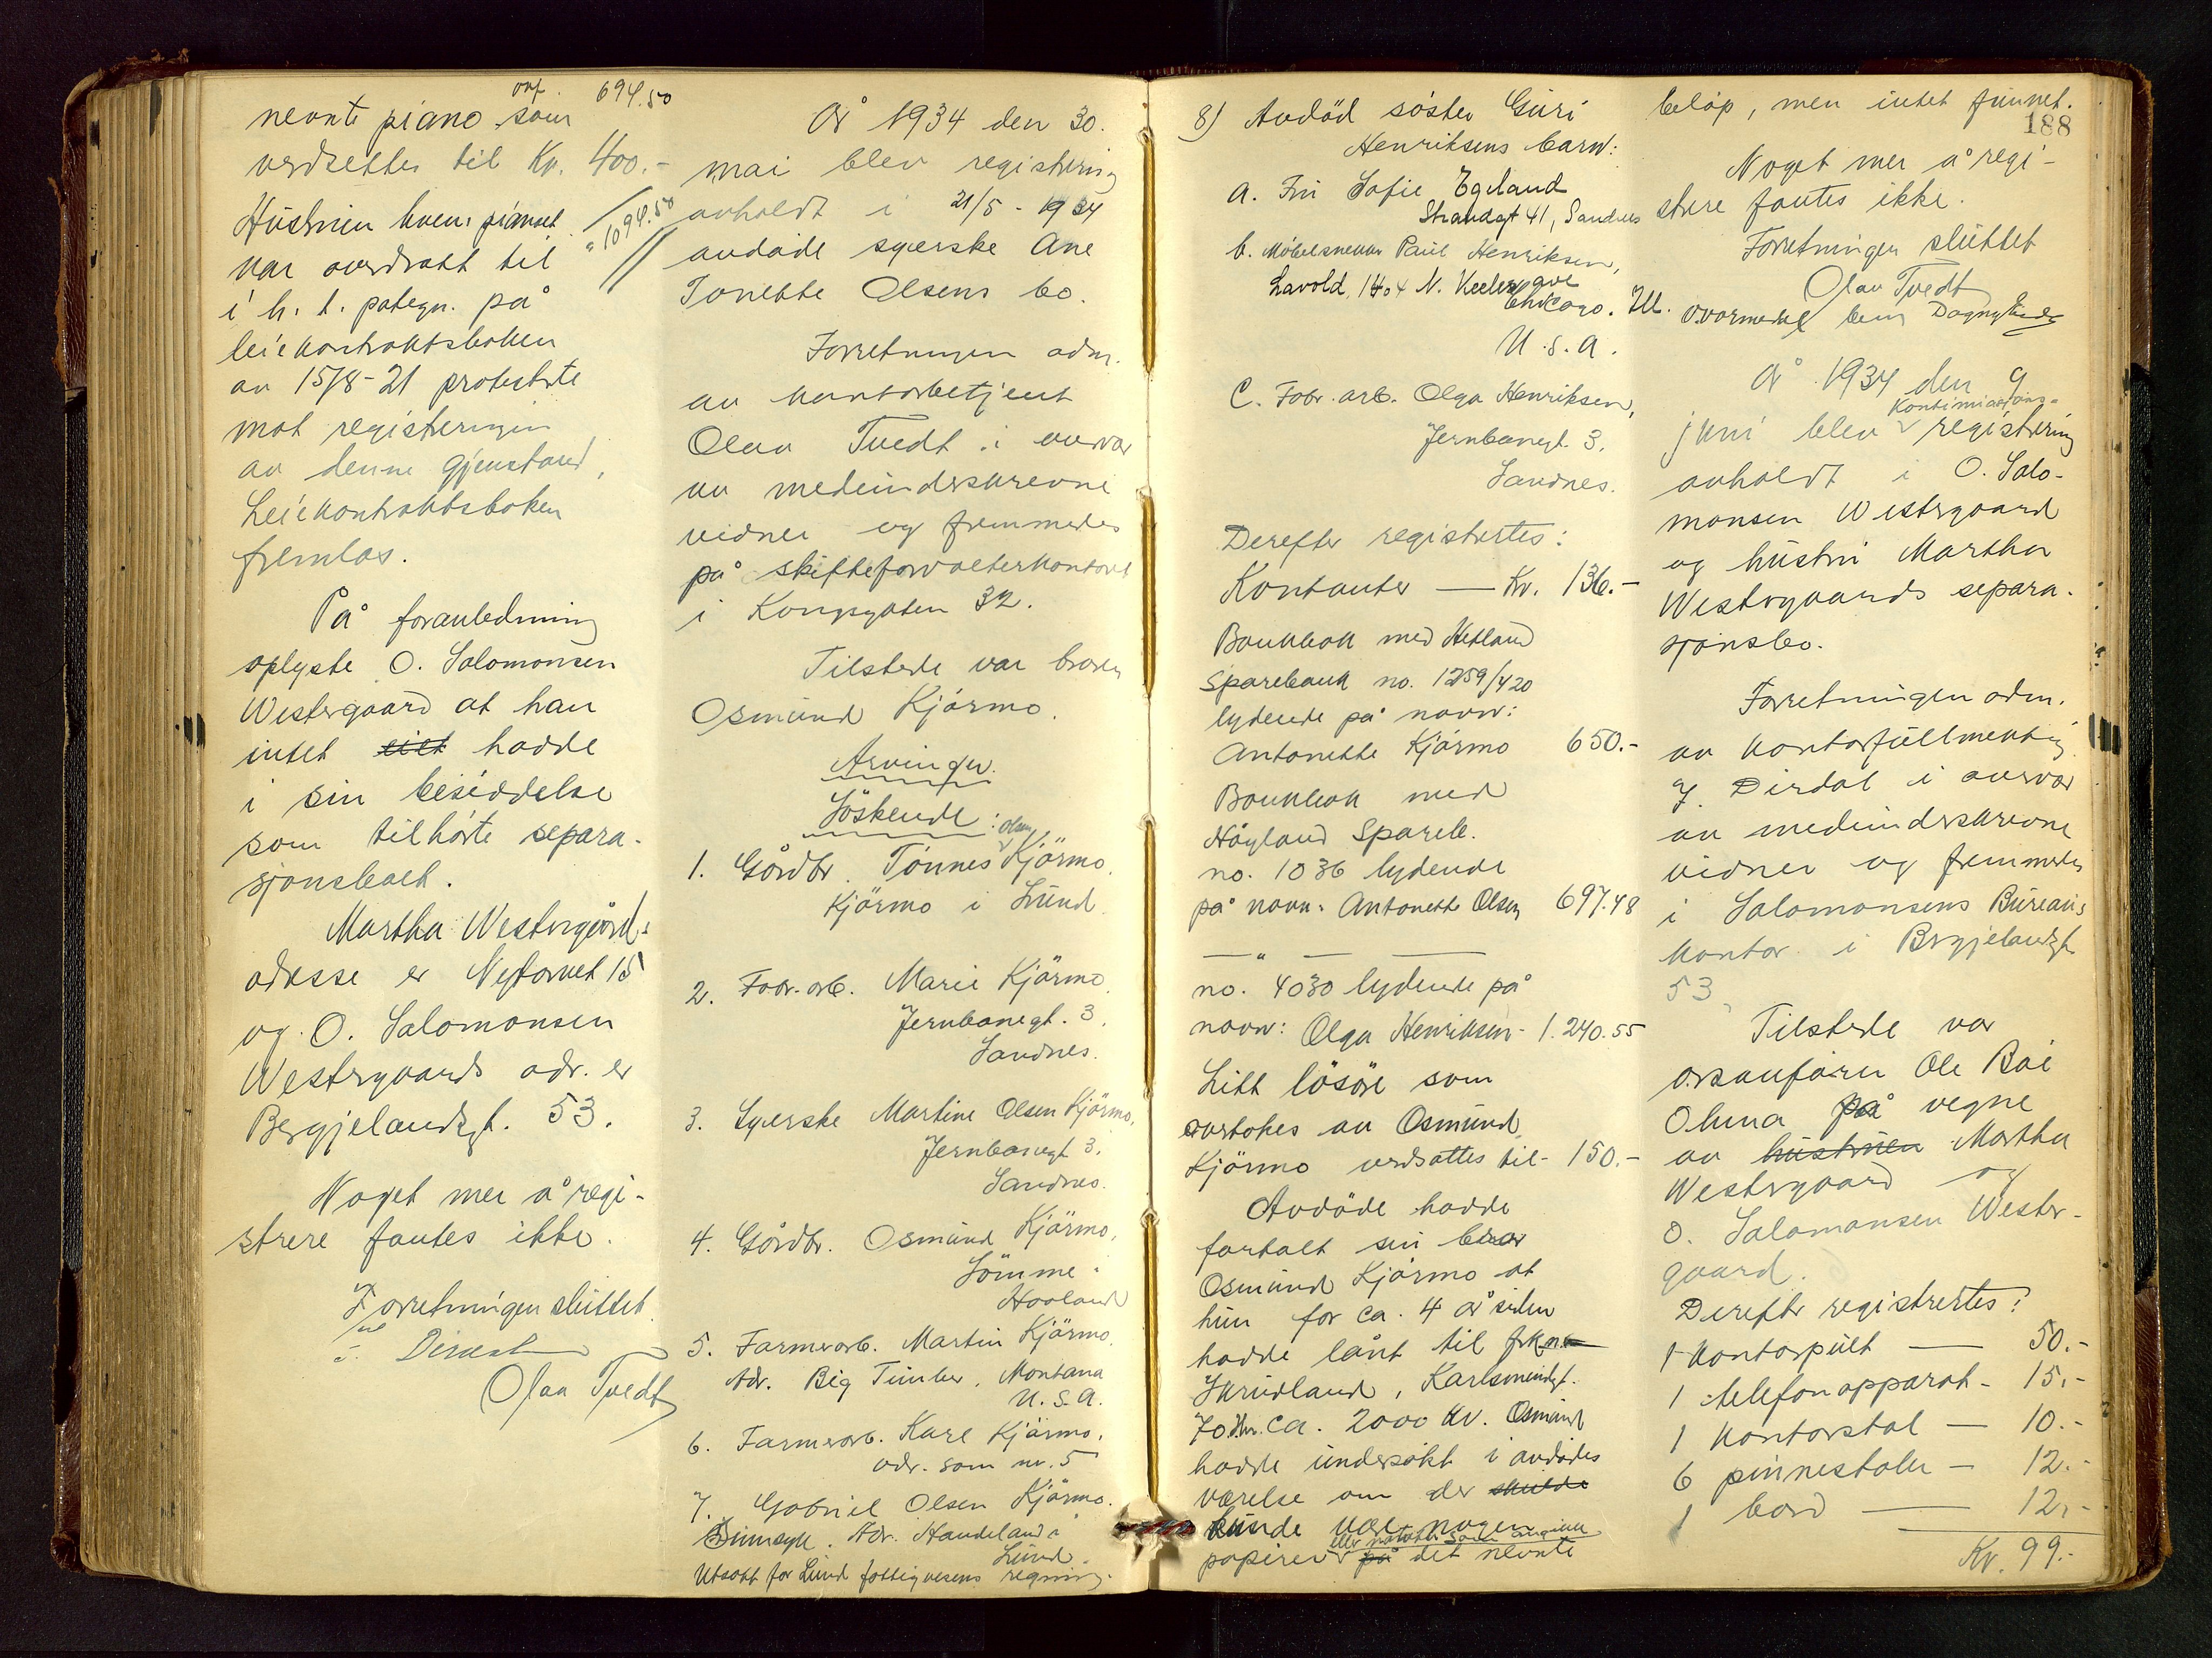 ovf. 694.50
nevnte piano som
verdsettes til Kr. 400.-
" 1094.50
Hustruen hvem pianoet
var overdratt til
i h. t. pategn. på
leiekontraktsboken
av 15/8-21 protesterte
mot registeringen
av denne gjenstand,
Leiekontraktsboken
fremlas.
På foranledning
oplyste O. Salomonsen
Westergaard at han
intet eiet hadde
i sin besiddelse
som tilhörte separa-
sjonsboet.
Martha Westergård's
adresse er Nytorvet 15
og O. Salomonsen
Westergaards adr. er
Bergjelandsgt. 53.
Noget mer å regi-
strere fantes ikke.
Forretningen sluttet
Olav Tvedt
År 1934 den 30.
mai blev registering
avholdt i 21/5 - 1934
avdöde syerske Ane
Tonette Olsens bo.
Forretningen adm.
av kontorbetjent
Olav Tvedt i overvær
av medunderskrevne
vidner og fremmedes
på skifteforvalterkontoret
i Kongsgaten 32.
Tilstede var broren
Osmund Kjörmo.
Arvinger.
Söskende:
1. Gårdbr. Tönnes Olsen Kjörmo,
Kjörmo i Lund.
2. Fabr. arb. Marie Kjörmo,
Jernbanegt. 3,
Sandnes.
3. Syerske Martine Olsen Kjörmo,
Jernbanegt 3,
Sandnes.
4. Gårdbr. Osmund Kjörmo,
Sömme i
Haaland
5. Farmerarb. Martin Kjörmo.
Adr. Big Timber, Montana
U.S.A.
6. Farmerarb. Karl Kjörmo,
adr. som nr. 5
7. Gabriel Olsen Kjörmo.
Sinnsyk. Adr. Haudeland i
Lund.
Utsatt for Lund fattigvesens regning.
8) Avdöd söster Guri
Henriksens barn:
a. Fru Sofie Egeland
Strandgt 41, Sandnes
b. Möbelsnekker Paul Henriksen,
Lavold, 1404 N. Keeler ave
Chicago. Ill.
U.S.A.
C. Fabr. arb. Olga Henriksen,
Jernbanegt 3.
Sandnes.
Derefter registrertes:
Kontanter — Kr. 136.-
Bankbok med Hetland
Sparebank no. 1259/420
lydende på navn:
Antonette Kjörmo 650.-
Bankbok med
Höyland Spareb.
no. 1036 lydende
på navn: Antonette Olsen 697.48
— " — — —
no. 4030 lydende på
navn: Olga Henriksen - 1.240.55
Litt lösöre som
overtokes av Osmund
Kjörmo verdsattes til - 150.-
Avdöde hadde
fortalt sin bror
Osmund Kjörmo at
hun for ca. 4 år siden
hadde lånt til frk.
Skrudland, Karlsmindegt.
70 ca. 2000 kr. Osmund
hadde undersökt i avdödes
værelse om der skulde
kunde være nogen
papirer på det nevnte
belöp, men intet funnet.
188
Noget mer å regi-
strere fantes ikke.
Forretningen sluttet
Olav Tvedt
År 1934 den 9
juni blev Kontinuasjons-registering
avholdt i O. Salo-
monsen Westergaard
og hustru Martha
Westergaards separa-
sjonsbo.
Forretningen adm.
av kontorfullmektig
J. Dirdal i overvær
av medunderskrevne
vidner og fremmedes
i Salomonsens Bureau's
kontor i Bergjelandsgt
53.
Tilstede var
o.r.sakförer Ole Bøe
Olsma på vegne
av hustruen Martha
Westergaard og
O. Salomonsen Wester-
gaard.
Derefter registrertes:
1 kontorpult — 50.-
1 telefonapparat - 15.-
1 kontorstol — 10.-
6 pinnestoler — 12.-
1 bord — 12,-
Kr. 99.-